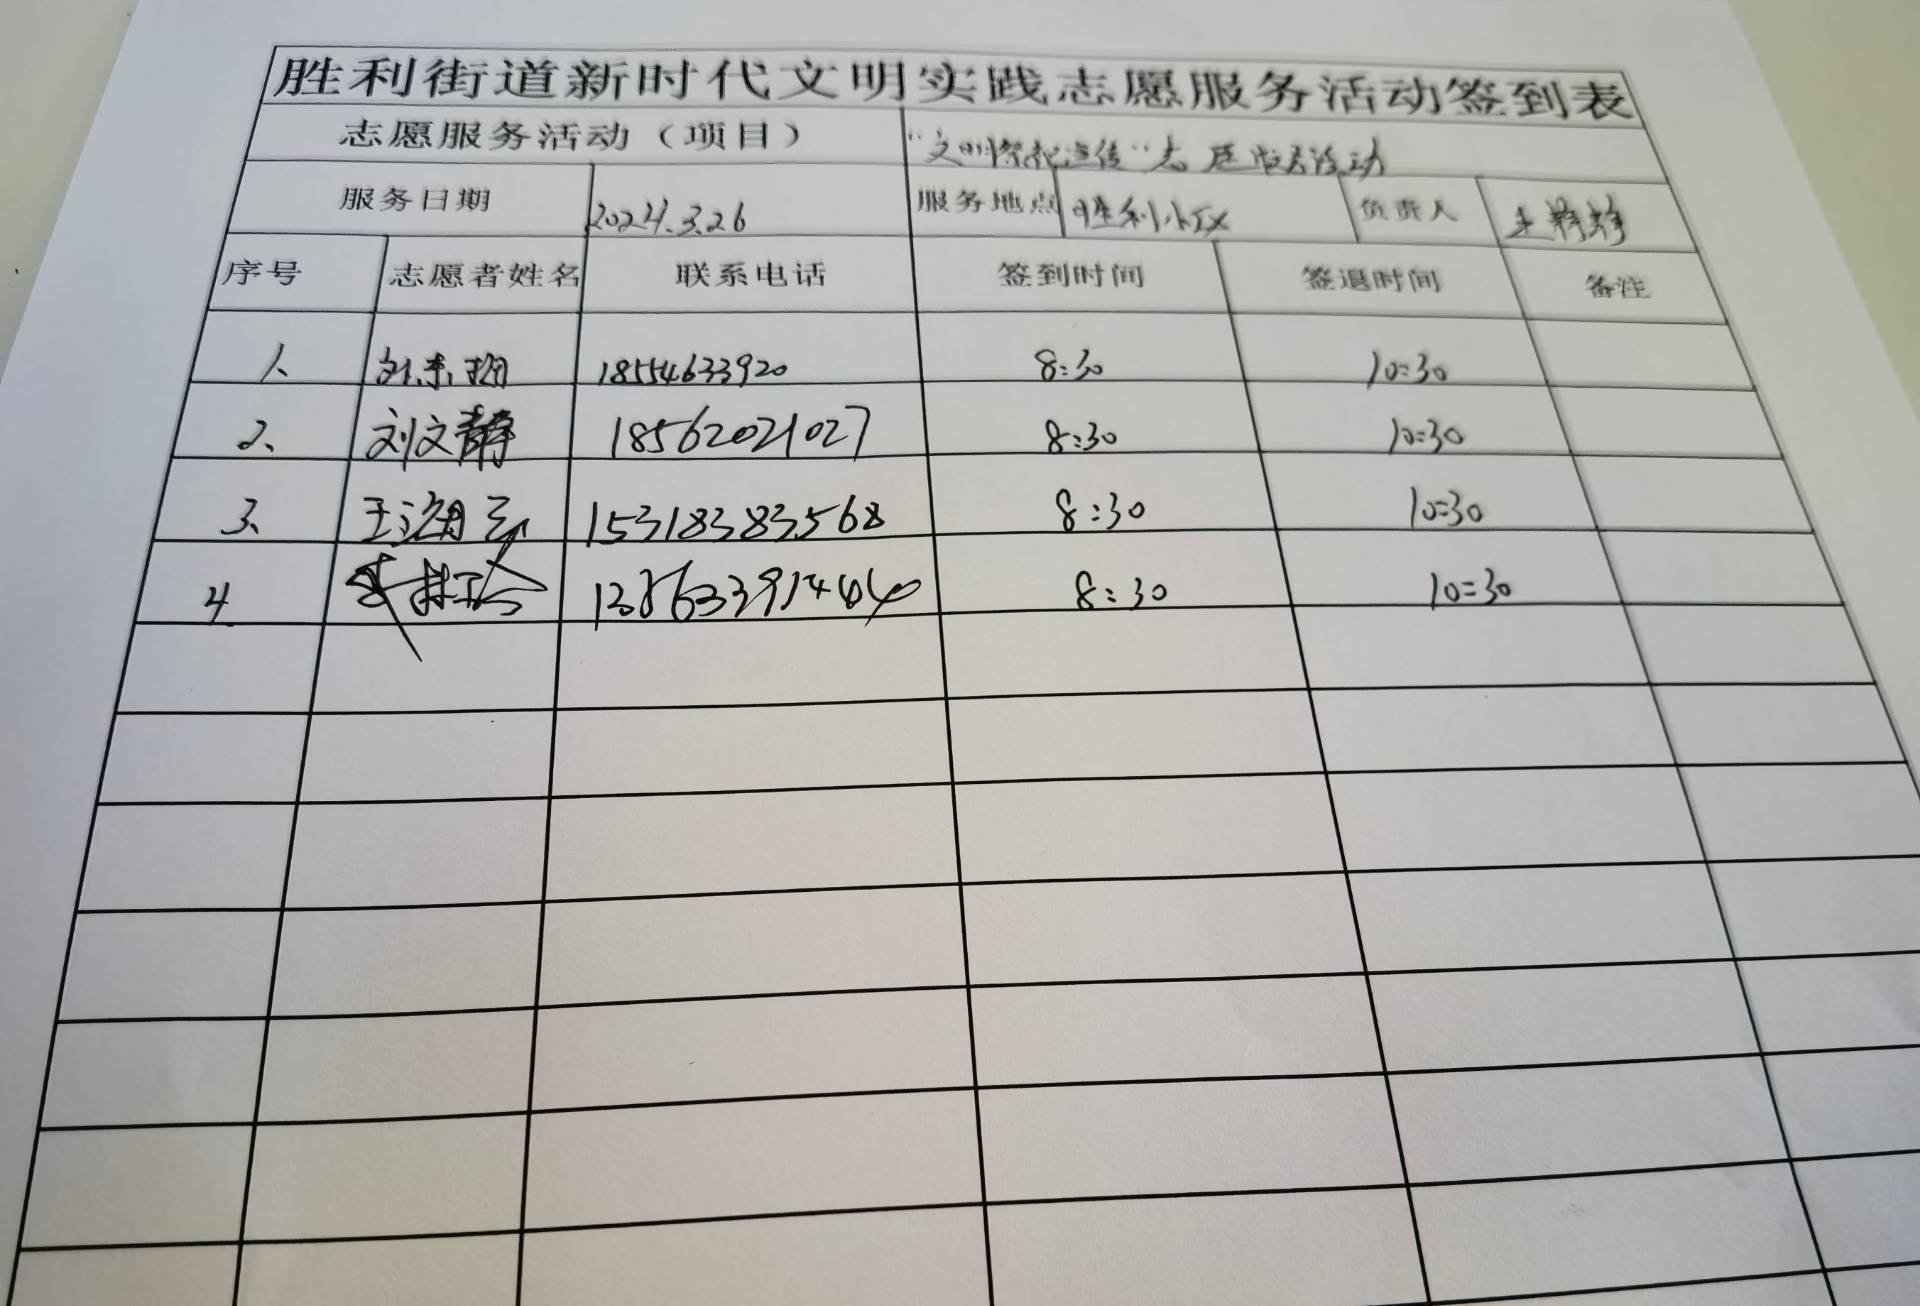 胜利街道新时代文明实践志愿服务活动签到表
志愿服务活动（项目） “文明祭祀宣传”志愿服务活动
服务日期 2024.3.26 服务地点 胜利小区 负责人
序号 志愿者姓名 联系电话 签到时间 签退时间 备注
1、 18554633920 8:30 10:30
2、 刘文静 18562021027 8:30 10:30
3、 王海云 15318383568 8:30 10:30
4 8:30 10:30